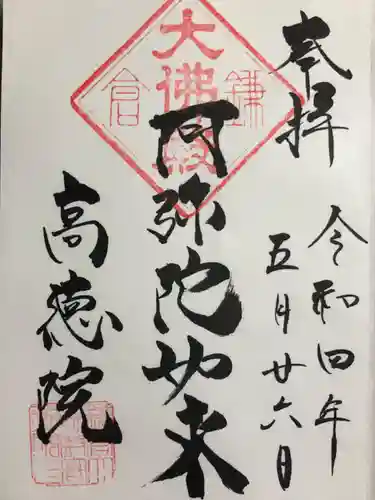 奉拝
令和四年
五月廿六日
鎌倉
大佛殿
阿弥陀如来
高徳院